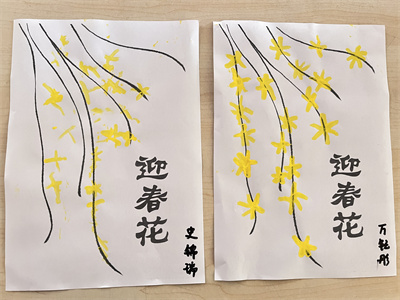 迎春花
史锦瑞
迎春花
万钰彤